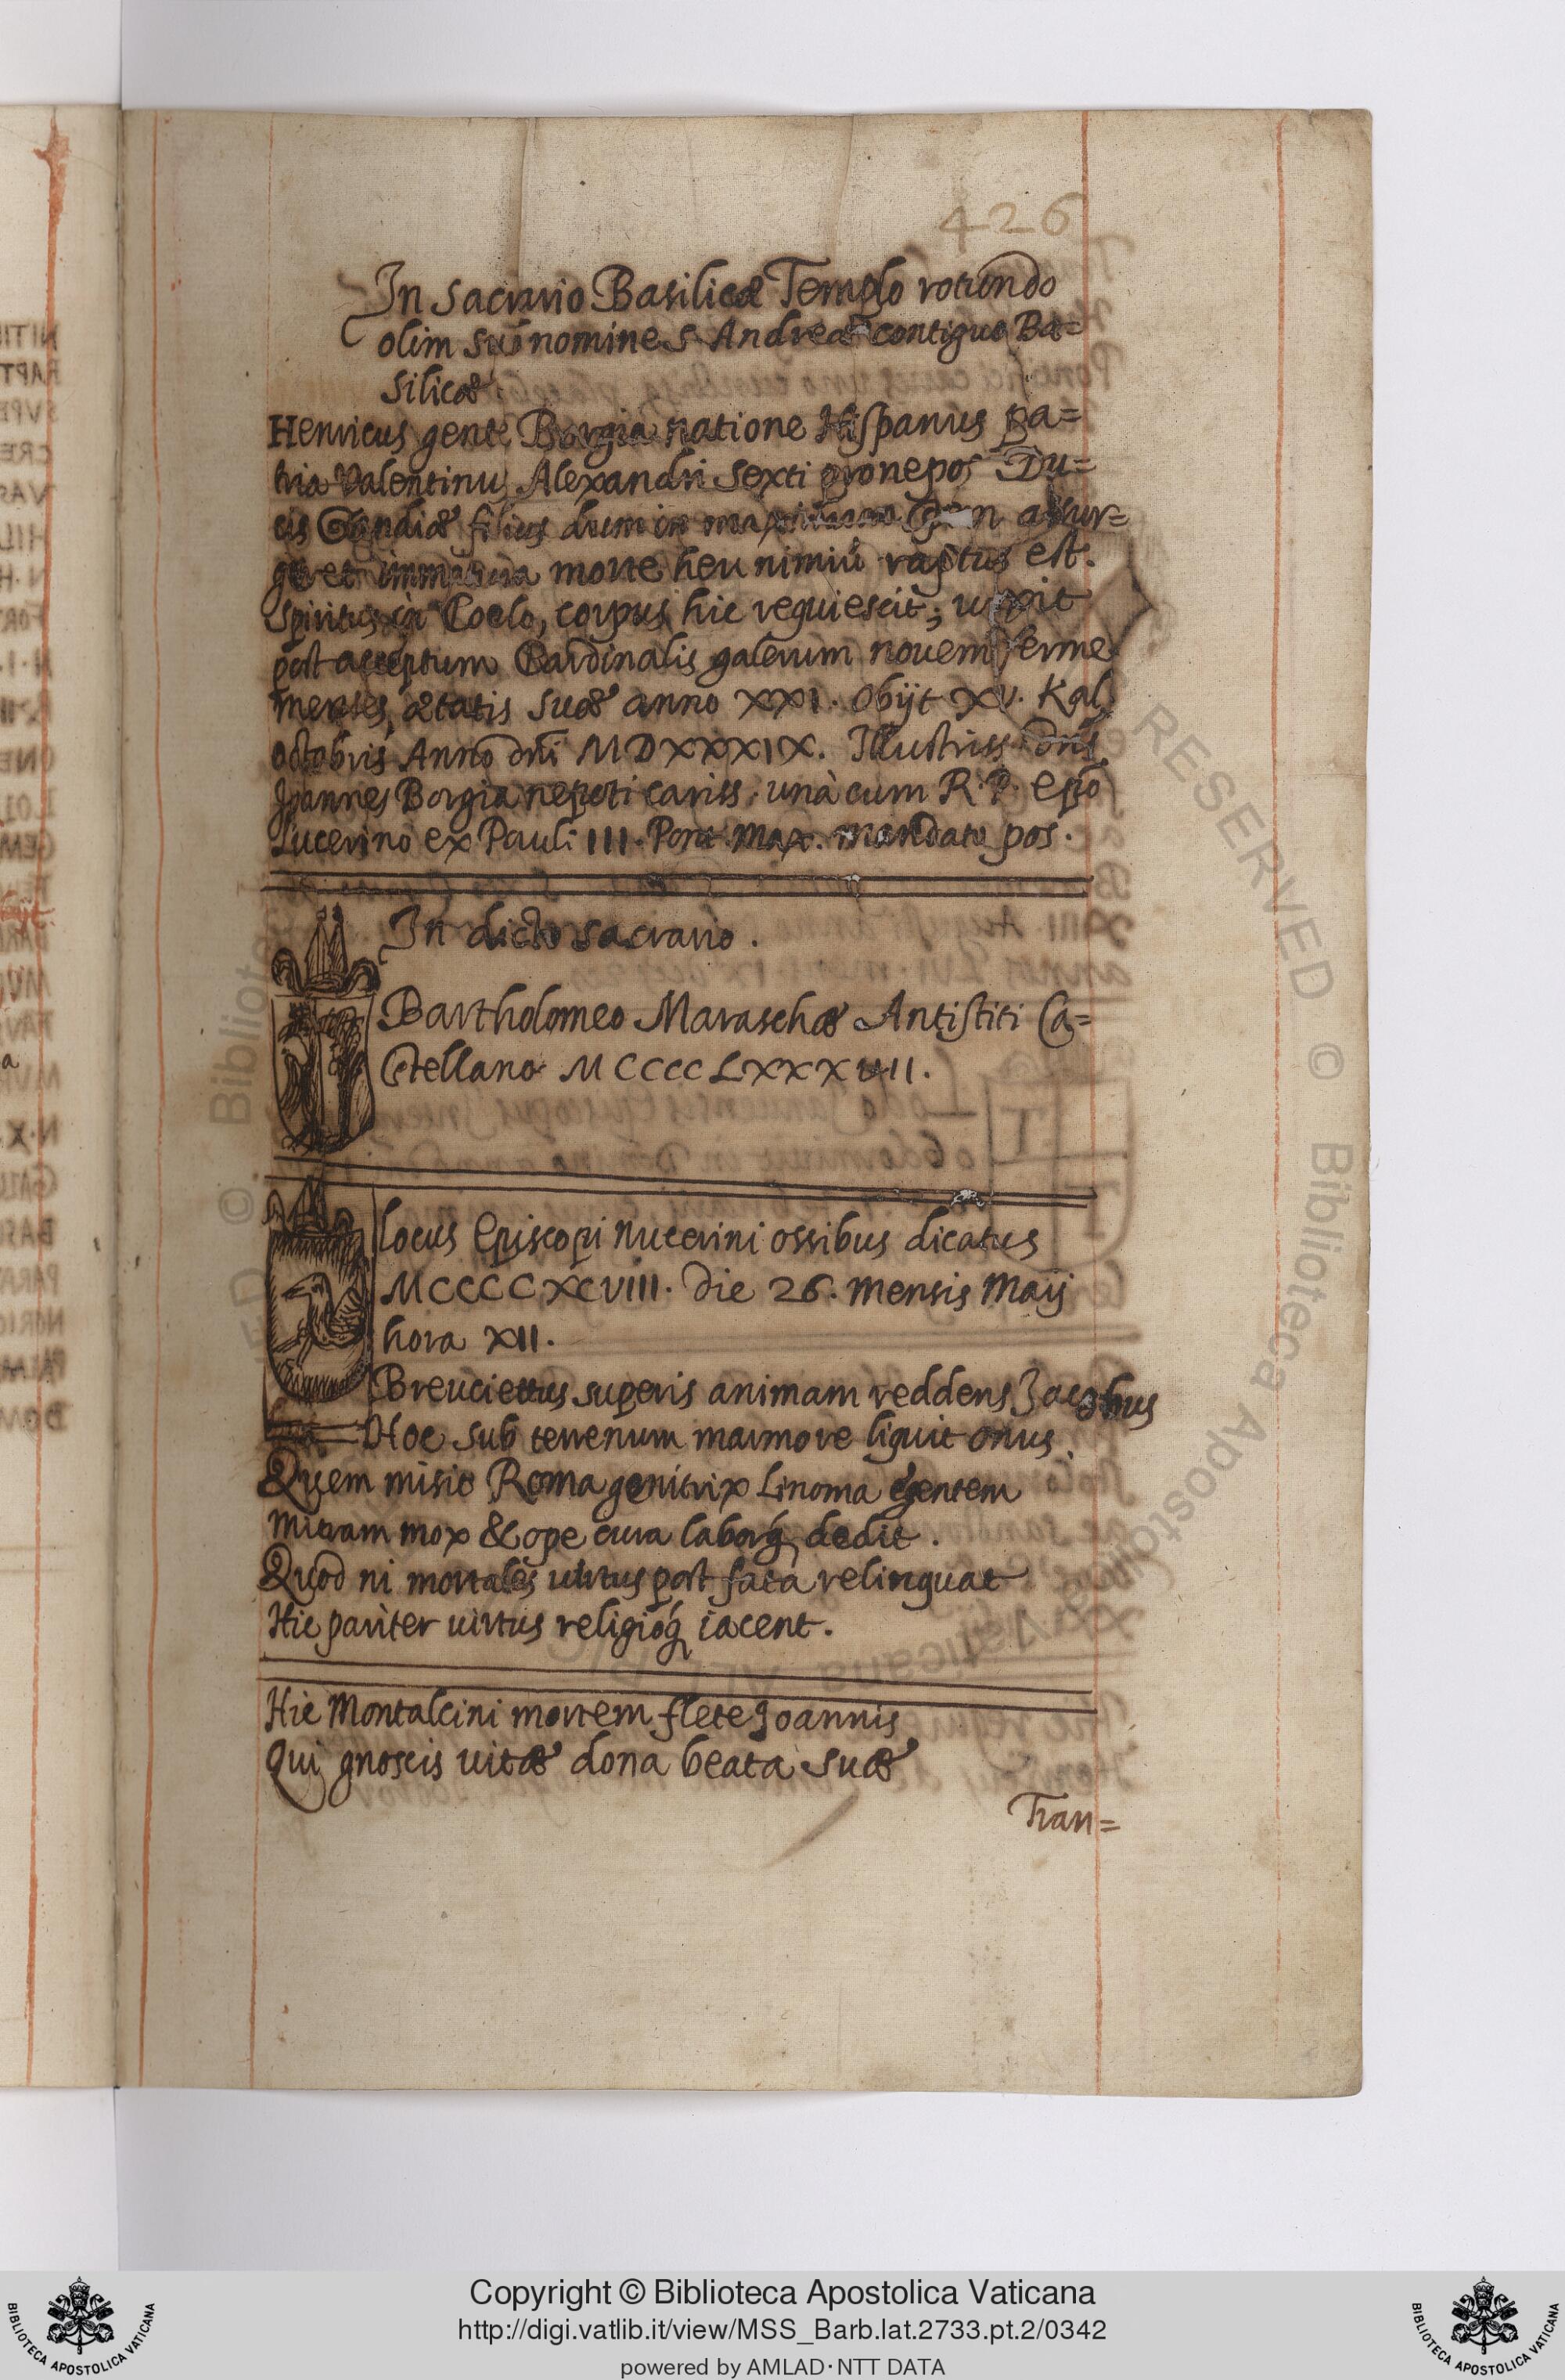 426
In sacrario Basilicæ Templo rotundo
olim sub nomine S. Andreæ contiguo Ba=
silicæ
Henricus gente Borgia natione Hispanus pa=
tria Valentinus Alexandri Sexti pronepos Du=
cis Candiæ filius dum in spem assur=
geret immatura morte heu nimiũ raptus est.
Spiritus in Coelo, corpus hic requiescit; uixit
post acceptum Cardinalis galerum nouem ferme
menses, ætatis suæ anno XXI. Obijt XV. Kal.
octobris Anno dñi MDXXXIX. Illustriss. dñs
Joannes Borgia nepoti cariss. unà cum R. P. epõ
Lucerino ex Pauli III. Pont. Max. mandato pos.
In dicto sacrario.
Bartholomeo Maraschæ Antistiti Ca=
stellano MCCCCLXXXVII.
Locus Episcopi Nucerini ossibus dicatus
MCCCCXCVIII. Die 26. mensis Maij
hora XII.
Breuciettus superis animam reddens Jacobus
Hoc sub terrenum marmore liquit onus.
Quem misit Roma genitrix Linoma egentem
Mitram mox & ope cura laborq; dedit.
Quod ni mortales uirtus post fata relinquat
Hic pariter uirtus religioq; iacent.
Hic Montalcini mortem flete Joannis
Qui gnoscis uitæ dona beata suæ
Tran=
Copyright © Biblioteca Apostolica Vaticana
http://digi.vatlib.it/view/MSS_Barb.lat.2733.pt.2/0342
powered by AMLAD·NTT DATA